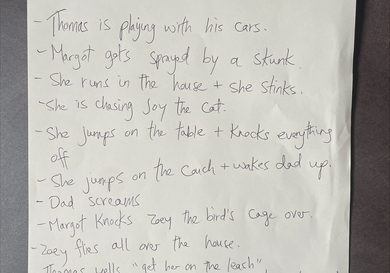 - Thomas is playing with his cars.
- Margot gets sprayed by a skunk.
- She runs in the house + she stinks.
- She is chasing Joy the cat.
- She jumps on the table + knocks everything
off
- She jumps on the couch + wakes dad up.
- Dad screams
- Margot knocks Zoey the bird's cage over.
- Zoey flies all over the house.
- Thomas yells "get her on the leash"